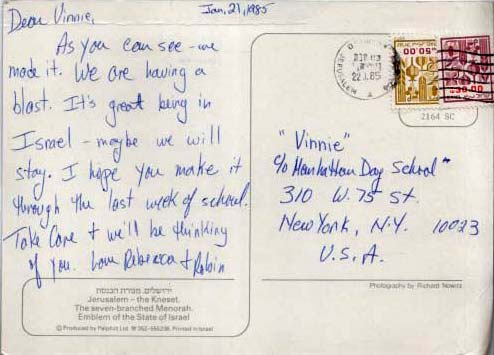 Jan. 21, 1985
Dear Vinnie,
As you can see - we
made it. We are having a
blast. It's great being in
Israel - maybe we will
stay. I hope you make it
through the last week of school.
Take Care + we'll be thinking
of you. Love Rebecca + Robin
ירושלים, מנורת הכנסת
Jerusalem – the Kneset.
The seven-branched Menorah.
Emblem of the State of Israel
© Produced by Palphot Ltd. ☎ 052-555238. Printed in Israel
JERUSALEM
22.1.85
2164 SC
"Vinnie"
c/o Manhattan Day School"
310 W. 75 St.
New York, N.Y. 10023
U.S.A.
Photography by Richard Nowitz